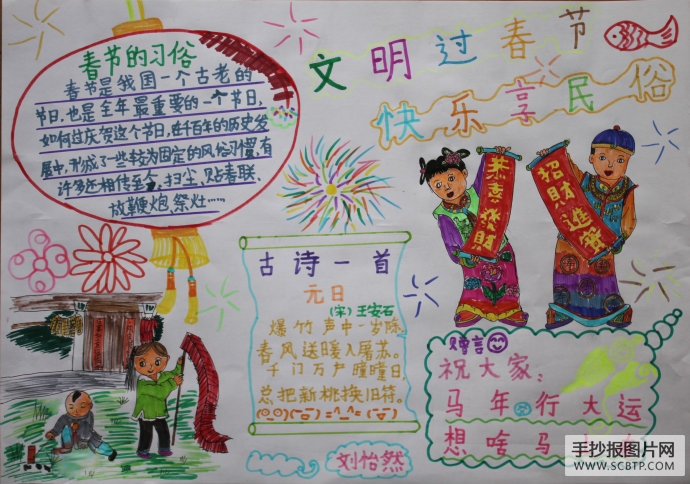 文明过春节
快乐享民俗
春节的习俗
春节是我国一个古老的
节日,也是全年最重要的一个节日,
如何过庆贺这个节日,在千百年的历史发
展中,形成了一些较为固定的风俗习惯,有
许多还相传至今,扫尘、贴春联、
放鞭炮、祭灶……
恭喜發財
招財進寶
古诗一首
元日
(宋)王安石
爆竹声中一岁除
春风送暖入屠苏。
千门万户曈曈日
总把新桃换旧符。
赠言
祝大家:
马年行大运
想啥马
刘怡然
手抄报图片网
WWW.SCBTP.COM